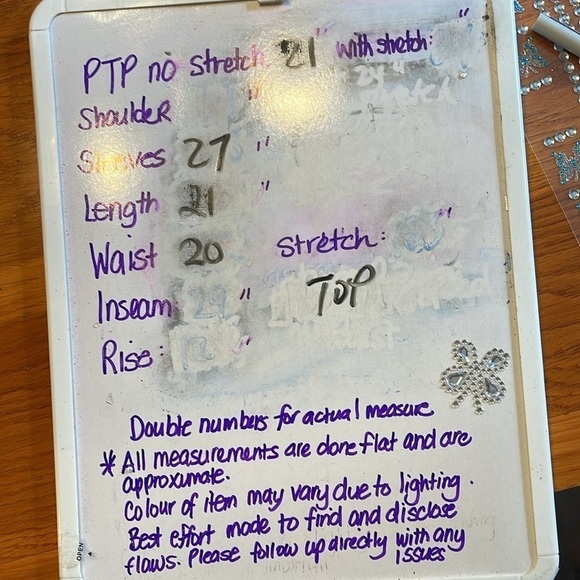 PTP no stretch 21" with stretch: "
Shoulder "
Sleeves 27 "
Length 21 "
Waist 20 Stretch: "
Inseam " TOP
Rise: "
Double numbers for actual measure
* All measurements are done flat and are
approximate.
Colour of item may vary due to lighting.
Best effort made to find and disclose
flaws. Please follow up directly with any
issues
OPEN